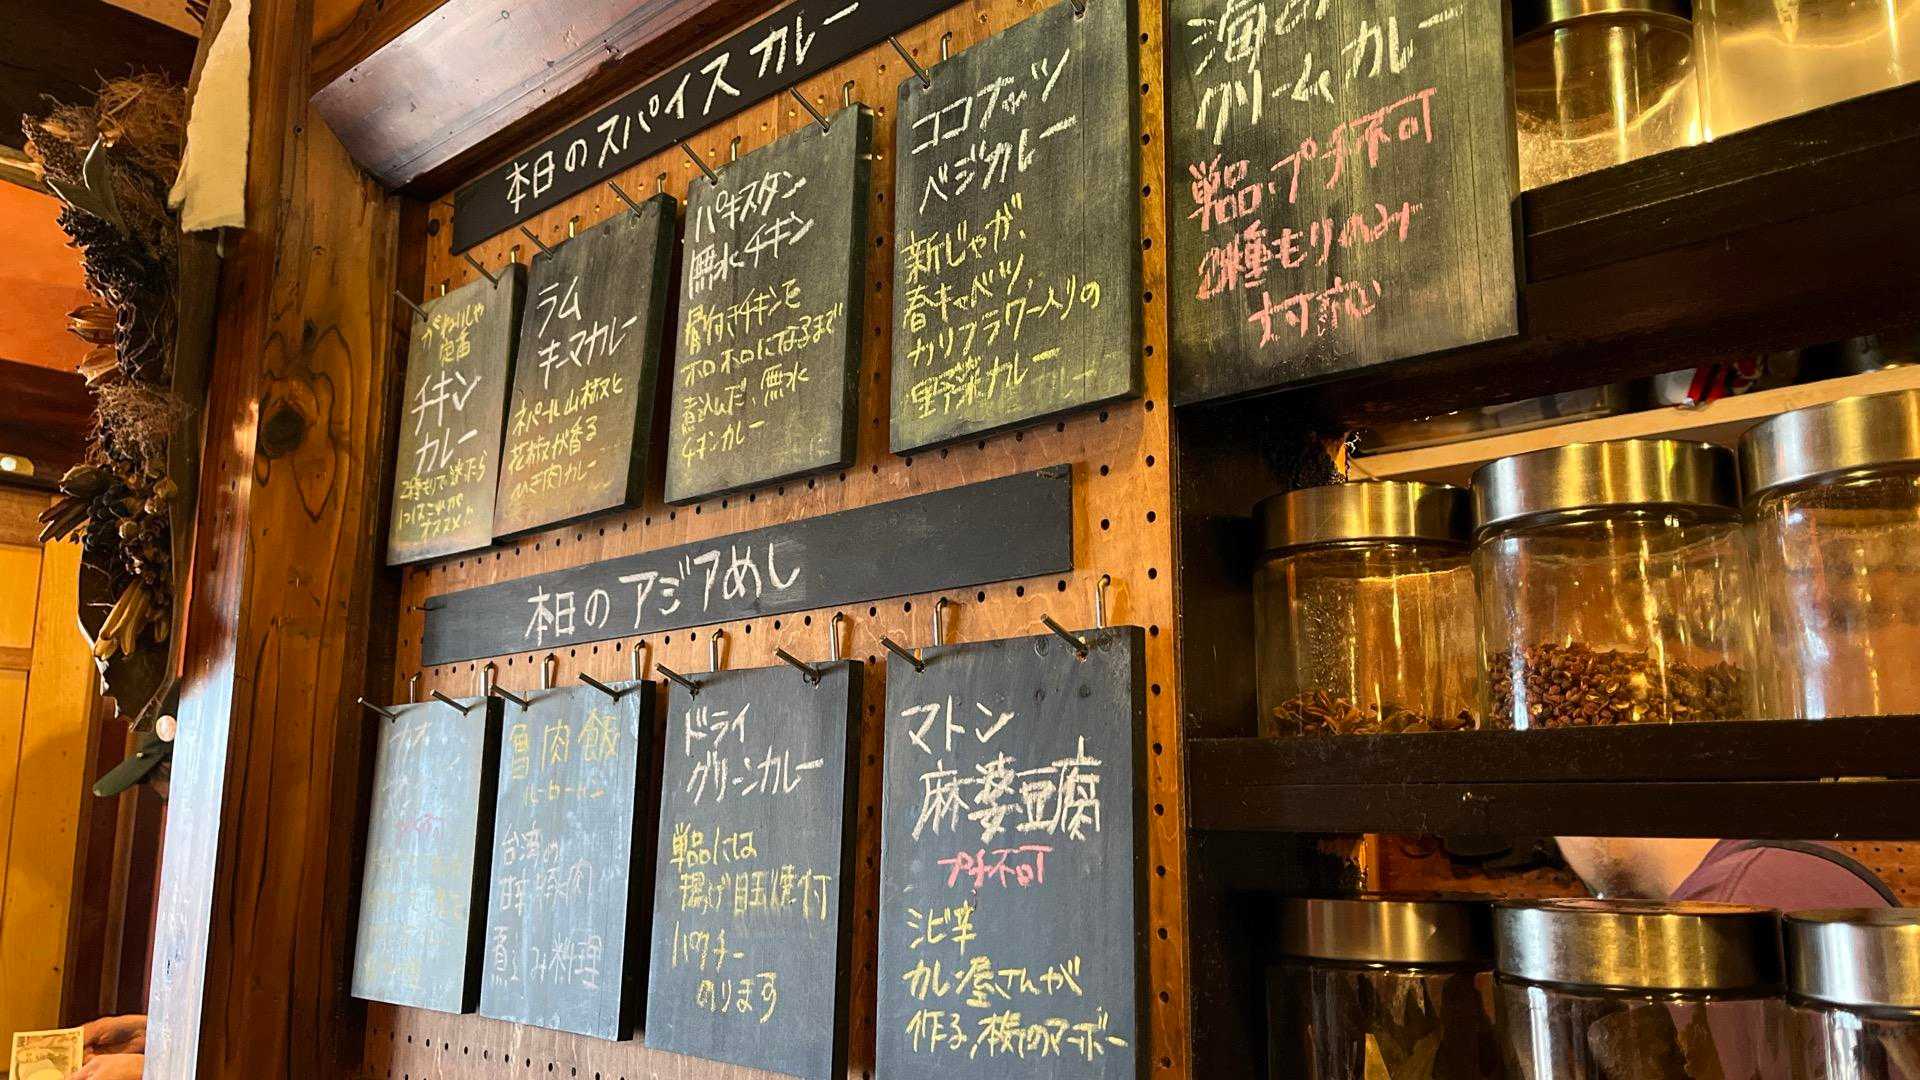 本日のスパイスカレー
チキン
カレー
2種もりで迷ったら
1つはこれが
オススメ!!
ラム
キーマカレー
ネパール山椒と
花椒が香る
ひき肉カレー
パキスタン
無水チキン
骨付きチキンを
ホロホロになるまで
煮込んだ、無水
チキンカレー
ココナッツ
ベジカレー
新じゃが、
春キャベツ、
カリフラワー入りの
野菜カレー
クリームカレー
単品、プチ不可
2種もりのみ
対応
本日のアジアめし
魯肉飯
ルーローハン
台湾の
煮込み料理
ドライ
グリーンカレー
単品には
揚げ目玉焼付
パクチー
のります
マトン
麻婆豆腐
プチ不可
シビ辛
カレー屋さんが
作る、本気のマーボー